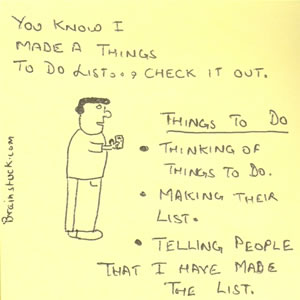 YOU KNOW I
MADE A THINGS
TO DO LIST... CHECK IT OUT.
THINGS TO DO
• THINKING OF
THINGS TO DO.
• MAKING THEIR
LIST.
• TELLING PEOPLE
THAT I HAVE MADE
THE LIST.
Brainstuck.com